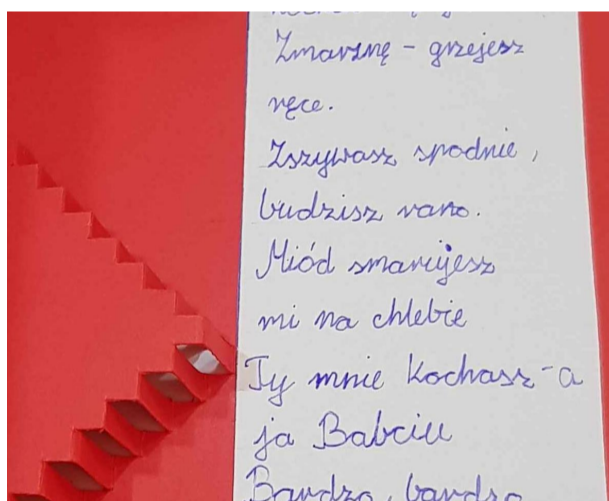 Zmarznę - grzejesz
ręce.
Zszywasz spodnie,
budzisz rano.
Miód smarujesz
mi na chlebie
Ty mnie kochasz - a
ja Babciu
Bardzo, bardzo